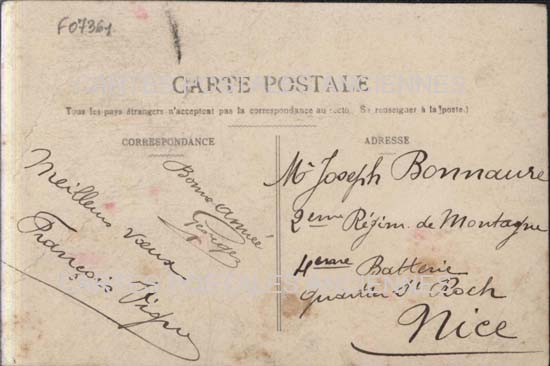 F07361
CARTES POSTALES ANCIENNES
CARTE POSTALE
Tous les pays étrangers n'acceptent pas la correspondance au recto. (Se renseigner à la poste.)
CORRESPONDANCE
Meilleurs vœux
François
Bonne année
Georges
ADRESSE
Mr Joseph Bonnaure
2eme Régim. de Montagne
4eme Batterie
quartier St Roch
Nice